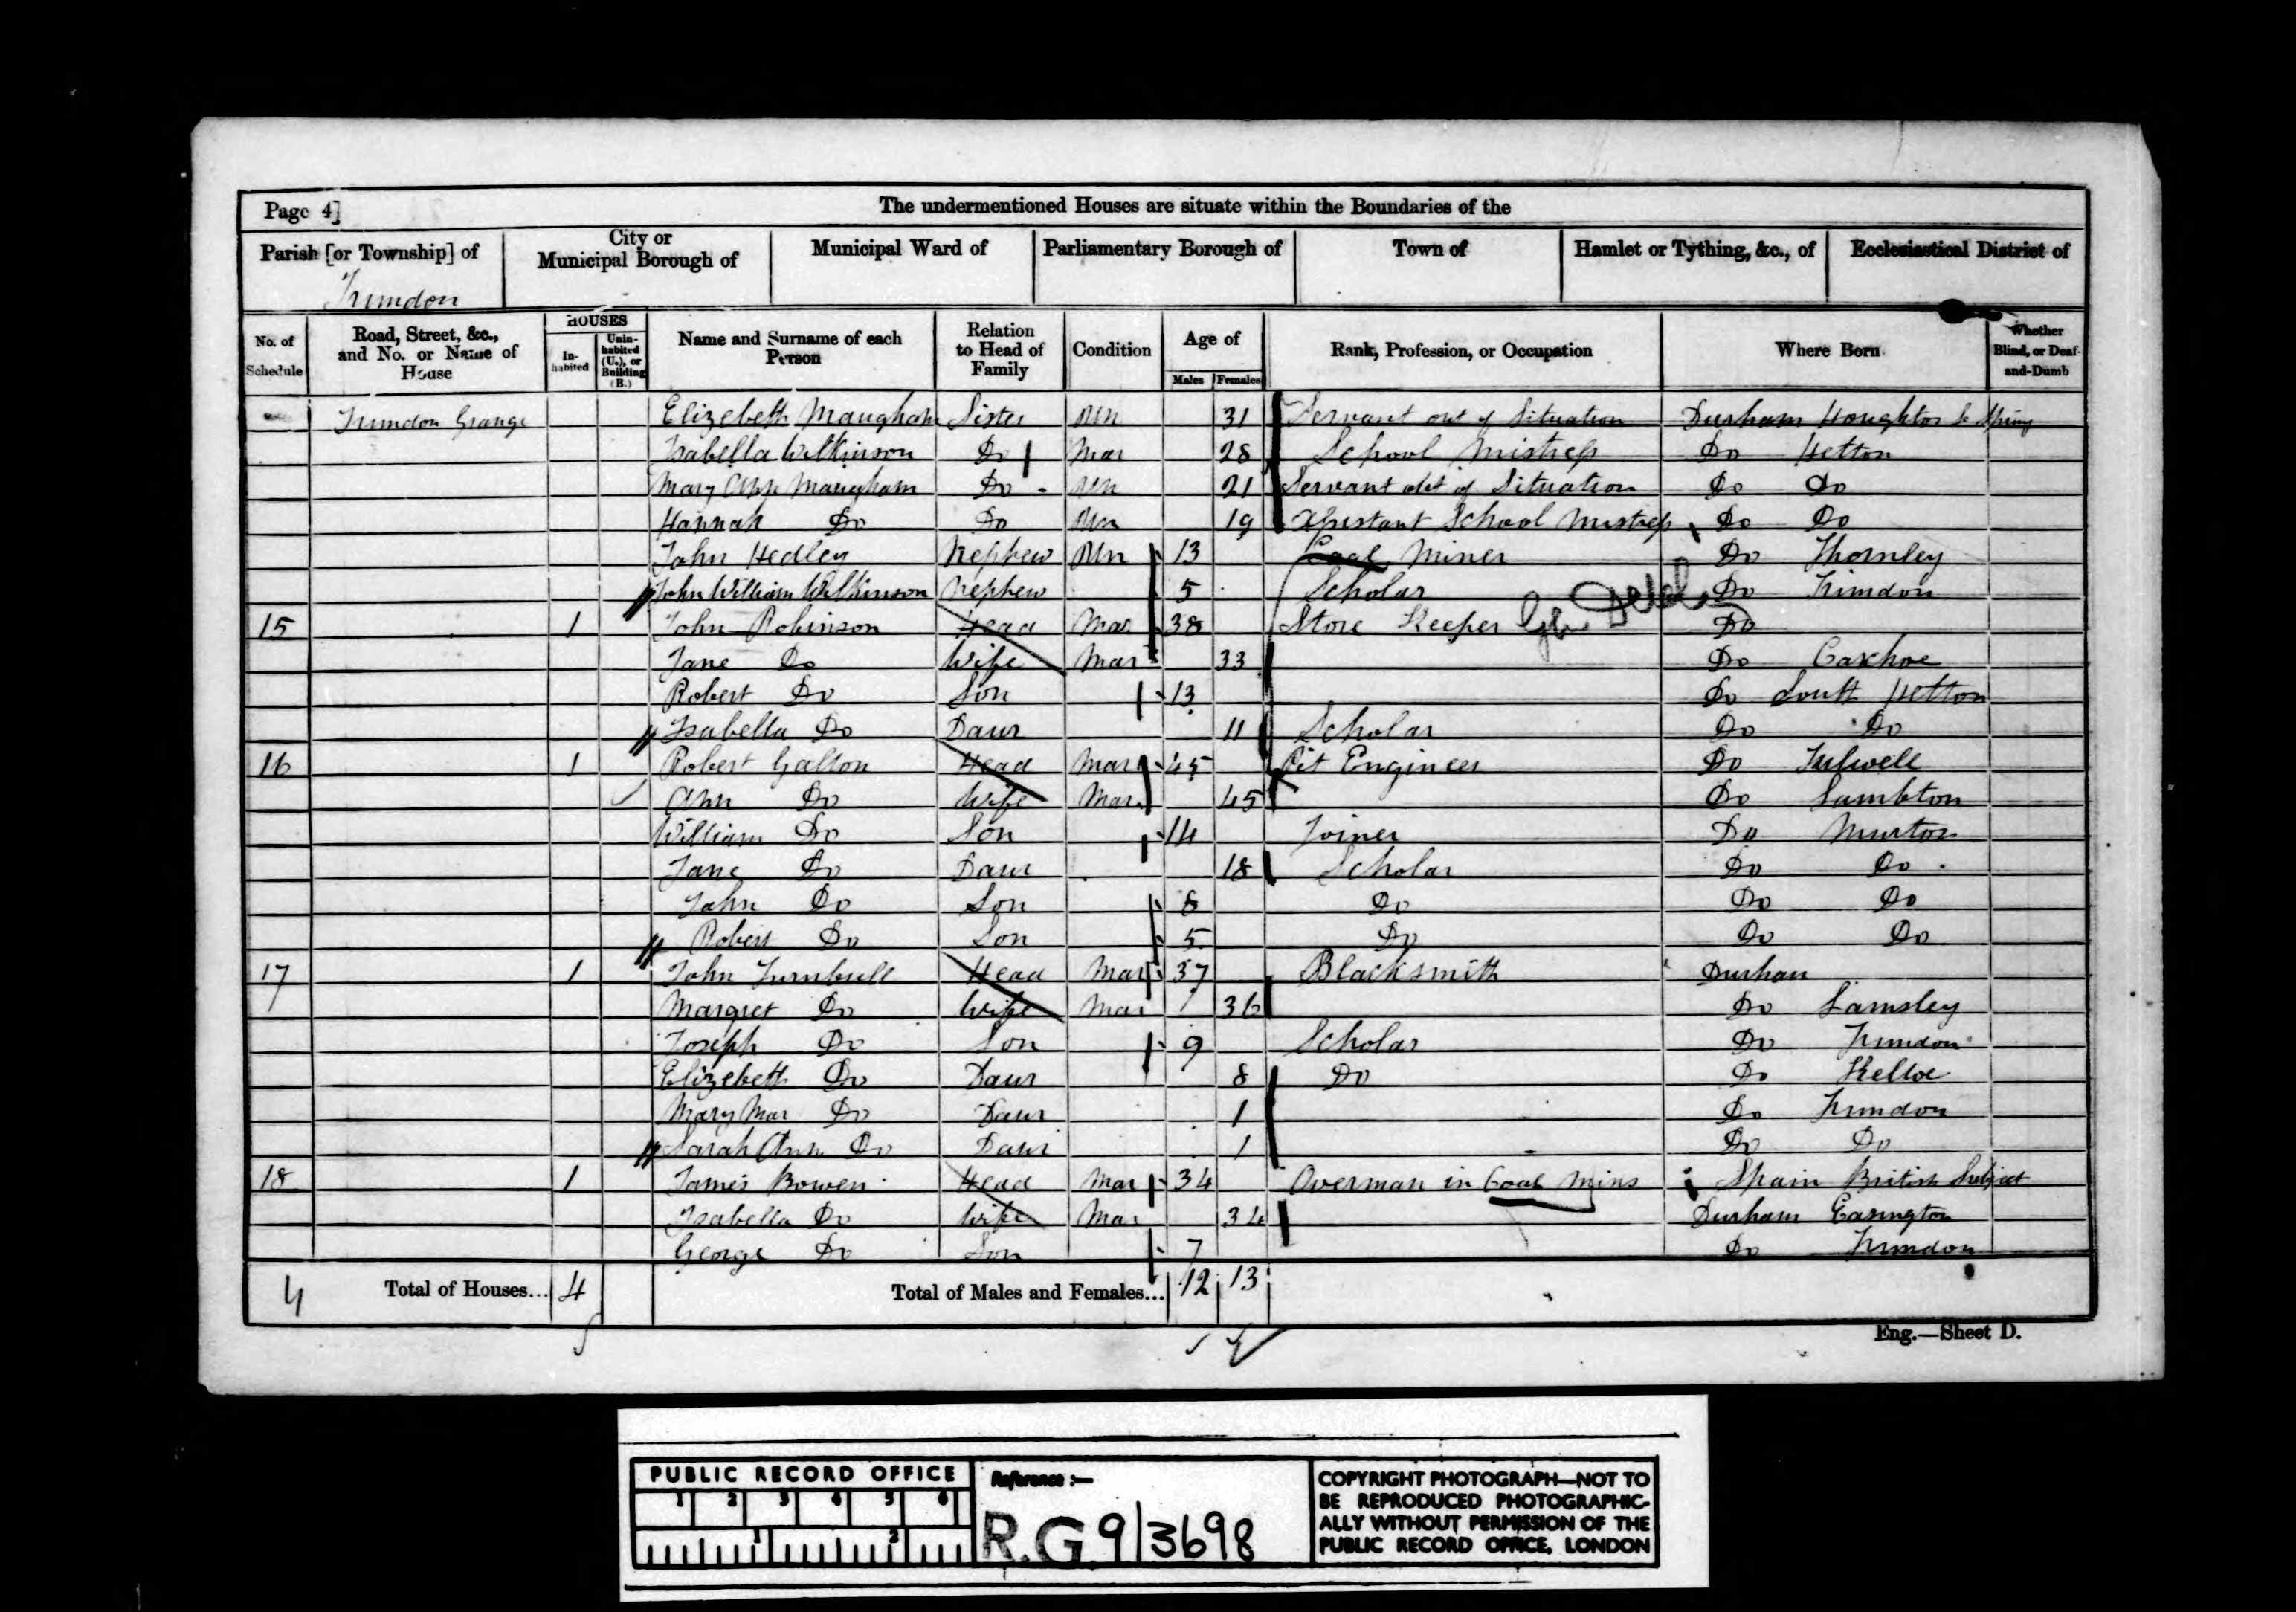 Page 4]
The undermentioned Houses are situate within the Boundaries of the
Parish [or Township] of
City or Municipal Borough of
Municipal Ward of
Parliamentary Borough of
Town of
Hamlet or Tything, &c., of
Ecclesiastical District of
Trimdon
No. of Schedule
Road, Street, &c., and No. or Name of House
HOUSES
In-habited
Unin-habited (U.), or Building (B.)
Name and Surname of each Person
Relation to Head of Family
Condition
Age of
Males
Females
Rank, Profession, or Occupation
Where Born
Whether Blind, or Deaf-and-Dumb
Trimdon Grange Elizebeth Maugham Sister Un 31 Servant out of Situation Durham Houghton le Spring
Isabella Wilkinson Do Mar 28 School Mistress Do Hetton
Mary Ann Maugham Do Un 21 Servant out of Situation Do Do
Hannah Do Do Un 19 Assistant School Mistress Do Do
John Hedley Nephew Un 13 Coal Miner Do Thornley
John William Wilkinson Nephew 5 Scholar Do Trimdon
15 1 John Robinson Head Mar 38 Store Keeper Do
Jane Do Wife Mar 33 Do Coxhoe
Robert Do Son 13 Do South Hetton
Isabella Do Daur 11 Scholar Do Do
16 1 Robert Galton Head Mar 45 Pit Engineer Do
Ann Do Wife Mar 45 Do Lambton
William Do Son 14 Joiner Do Murton
Jane Do Daur 18 Scholar Do Do
John Do Son 8 Do Do Do
Robert Do Son 5 Do Do Do
17 1 John Turnbull Head Mar 37 Blacksmith Durham
Margret Do Wife Mar 36 Do Lamsley
Joseph Do Son 9 Scholar Do Trimdon
Elizebeth Do Daur 8 Do Do Kelloe
Mary Mar Do Daur 1 Do Trimdon
Sarah Ann Do Daur 1 Do Do
18 1 James Bowen Head Mar 34 Overman in Coal Mins Spain British Subject
Isabella Do Wife Mar 34 Durham Easington
George Do Son 7 Do Trimdon
4 Total of Houses... 4 Total of Males and Females... 12 13
Eng.—Sheet D.
PUBLIC RECORD OFFICE
1 2 3 4 5 6
1 2
Reference :—
R.G. 9/3698
COPYRIGHT PHOTOGRAPH—NOT TO
BE REPRODUCED PHOTOGRAPHIC-
ALLY WITHOUT PERMISSION OF THE
PUBLIC RECORD OFFICE, LONDON